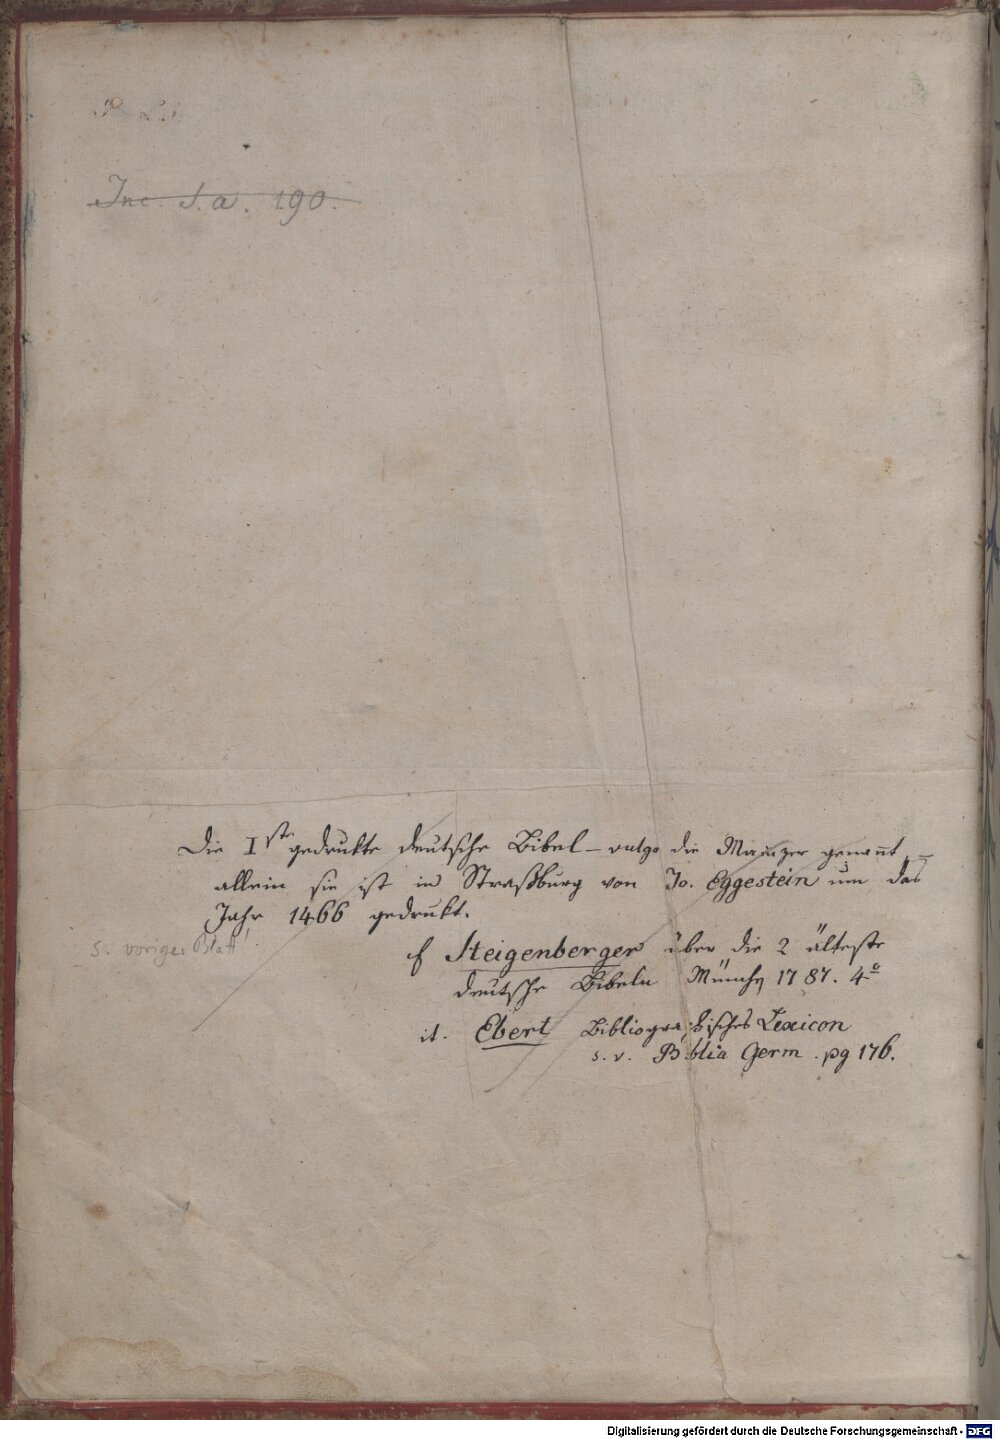 Inc. s. a. 190.
Die Iste gedrukte deutsche Bibel – vulgo die Mainzer genant, –
allein sie ist in Straßburg von Jo. Eggestein um das
Jahr 1466 gedrukt.
s. voriges Blatt!
cf Steigenberger über die 2 älteste
deutsche Bibeln Münch 1787. 4o
it. Ebert Bibliographisches Lexicon
s. v. Biblia Germ. pg 176.
Digitalisierung gefördert durch die Deutsche Forschungsgemeinschaft - DFG